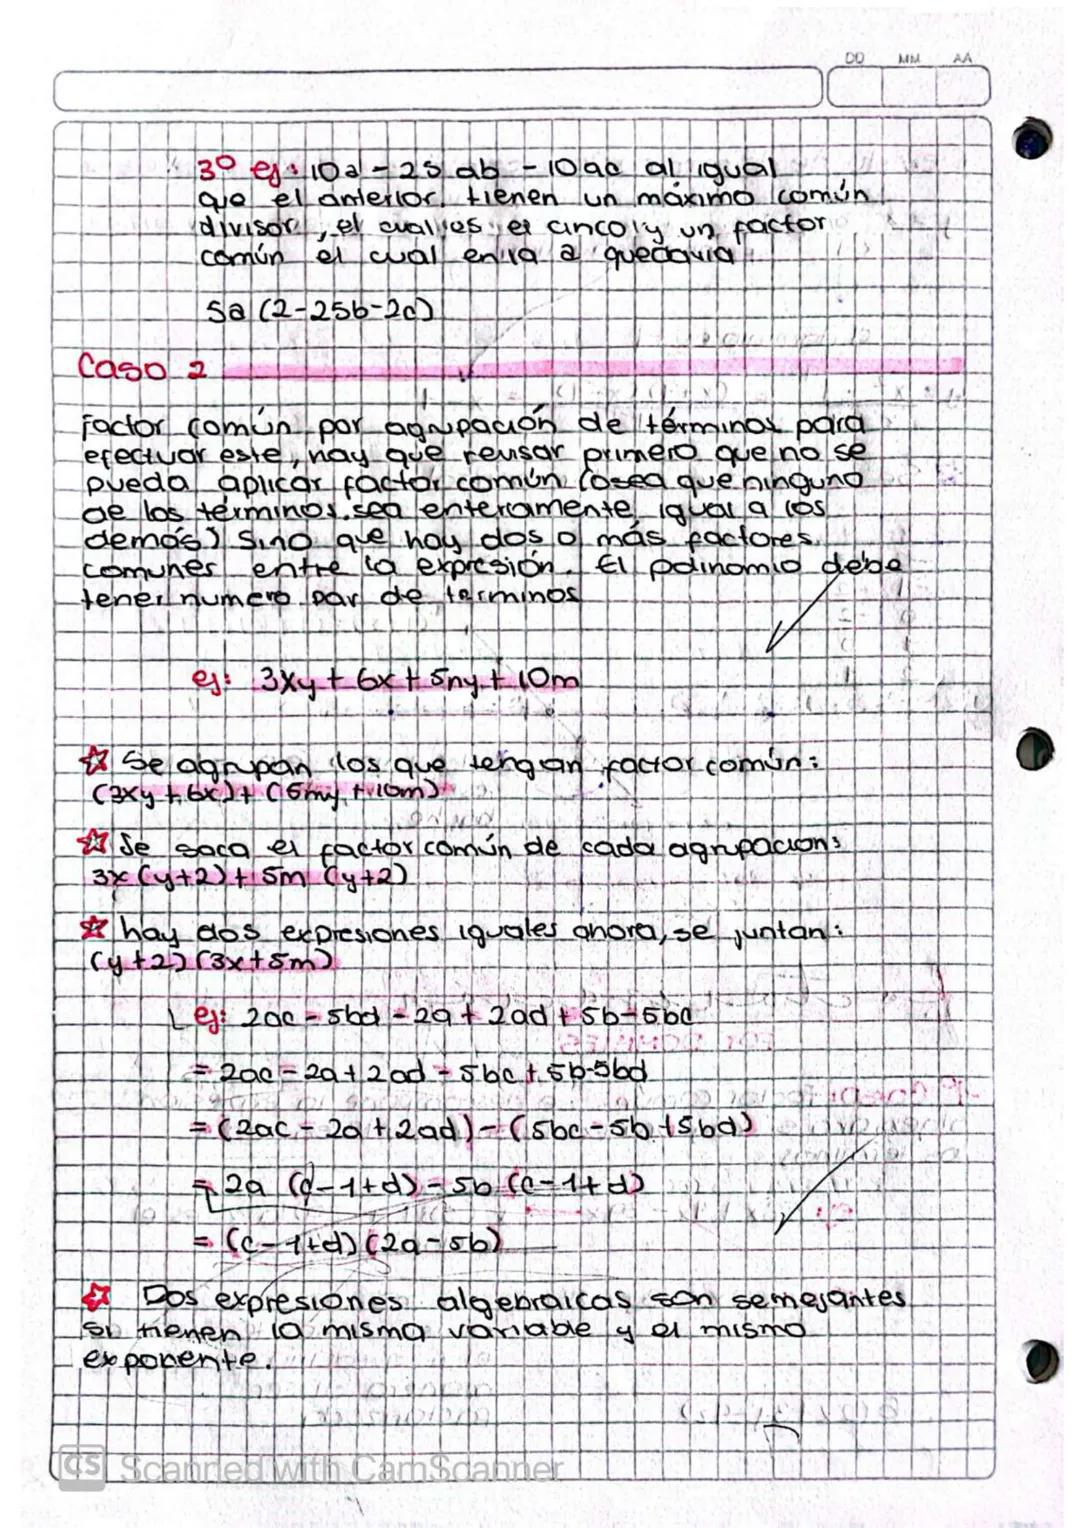 DD MM AA
3º ej: 10a - 25 ab - 10ac al igual
que el anterior, tienen un máximo común
divisor, el cual es el cinco y un factor
común el cual en la a quedaria
5a (2-25b-2c)
Caso 2
Factor común por agrupación de términos para
efectuar este, hay que revisar primero que no se
pueda aplicar factor común (osea que ninguno
de los términos sea enteramente igual a los
demás) Sino que hay dos o más factores
comunes entre la expresión. El polinomio debe
tener numero par de terminos
ej: 3xy + 6x + 5my + 10m
Se agrupan los que tengan factor común:
(3xy + 6x) + (5my + 10m)
Se saca el factor común de cada agrupacion:
3x (y+2) + 5m (y+2)
hay dos expresiones iguales ahora, se juntan:
(y+2) (3x+5m)
ej: 2ac - 5bd - 2a + 2ad + 5b - 5bc
= 2ac - 2a + 2ad - 5bc + 5b - 5bd
= (2ac - 2a + 2ad) - (5bc - 5b + 5bd)
= 2a (c-1+d) - 5b (c-1+d)
= (c-1+d) (2a-5b)
Dos expresiones algebraicas son semejantes
si tienen la misma variable y el mismo
exponente.
CS Scanned with CamScanner